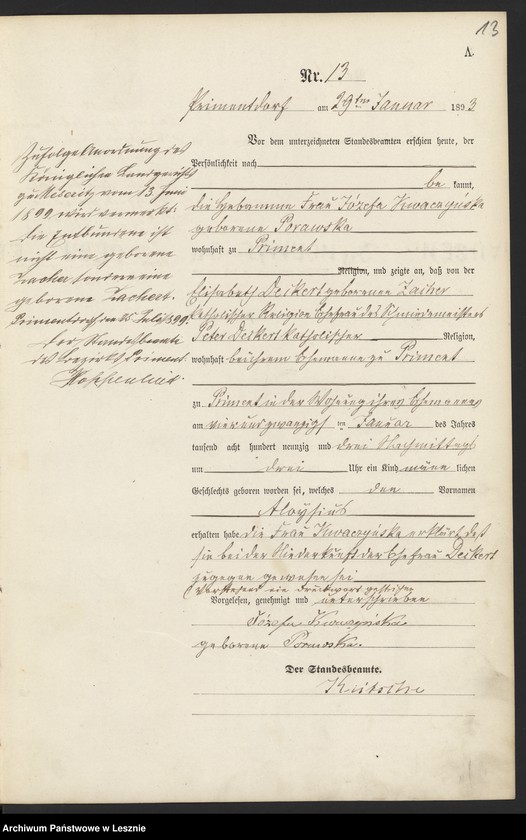 13
A.
Nr. 13
Primentdorf am 29ten Januar 1893
Vor dem unterzeichneten Standesbeamten erschien heute, der
Persönlichkeit nach
be kannt,
die Hebamme Frau Józefa Kwaczyńska
geborene Porawska
wohnhaft zu Priment
Religion, und zeigte an, daß von der
Elisabeth Deikert geborenen Zacher
katholischer Religion Ehefrau des Schmiedemeisters
Peter Deikert katholischer Religion,
wohnhaft bei ihrem Ehemanne zu Priment
zu Priment in der Wohnung ihres Ehemannes
am vierundzwanzigsten Januar des Jahres
tausend acht hundert neunzig und drei Nachmittags
um drei Uhr ein Kind männ lichen
Geschlechts geboren worden sei, welches den Vornamen
Aloysius
erhalten habe die Frau Kwaczyńska erklärt, daß
sie bei der Niederkunft der Ehefrau Deikert
zugegen gewesen sei
Vorstehend ein Druckwort gestrichen
Vorgelesen, genehmigt und unterschrieben
Józefa Kwaczyńska
geborene Porawska.
Der Standesbeamte.
Zufolge Anordnung des
Königlichen Landgerichts
zu Meseritz vom 13 Juni
1899 wird vermerkt:
die Entbundene ist
nicht eine geborene
Zacher sondern eine
geborene Zachert.
Primentdorf den 25 Juli 1899.
der Standesbeamte
des Bezirks Priment
Archiwum Państwowe w Lesznie